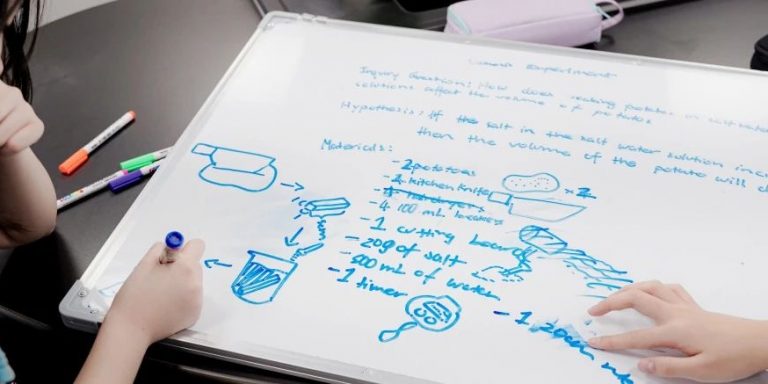 Experiment
Inquiry Question: How does soaking potatoes in salt water
solutions affect the volume of potatos
Hypothesis: If the salt in the salt water solution
then the volume of the potato will
Materials:
- 2 potatoes
- 2 kitchen knife
x2
- 4 100 mL beakers
- 1 cutting board
- 20g of salt
- 500 mL of water
- 1 timer
- 1